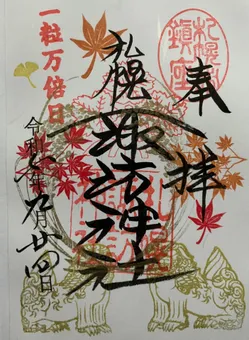 奉拝
札幌
諏訪神社
一粒万倍日
令和 年九月廿四日
鎮座